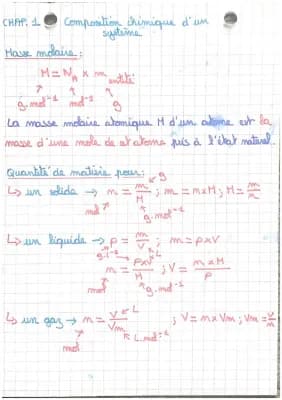 CHAP. 1 Composition chimique d'un
système
Masse molaire :
M = N_A × m entité
g.mol⁻¹ mol⁻¹ g
La masse molaire atomique M d'un atome est la
masse d'une mole de cet atome pris à l'état naturel.
Quantité de matière pour :
↳ un solide → n = m/M ; m = n×M ; M = m/n
g
mol g.mol⁻¹
↳ un liquide → ρ = m/V ; m = ρ×V
g.L⁻¹ L
n = ρ×V/M ; V = n×M/ρ
mol g.mol⁻¹
↳ un gaz → n = V/Vm ; V = n×Vm ; Vm = V/n
L
mol L.mol⁻¹